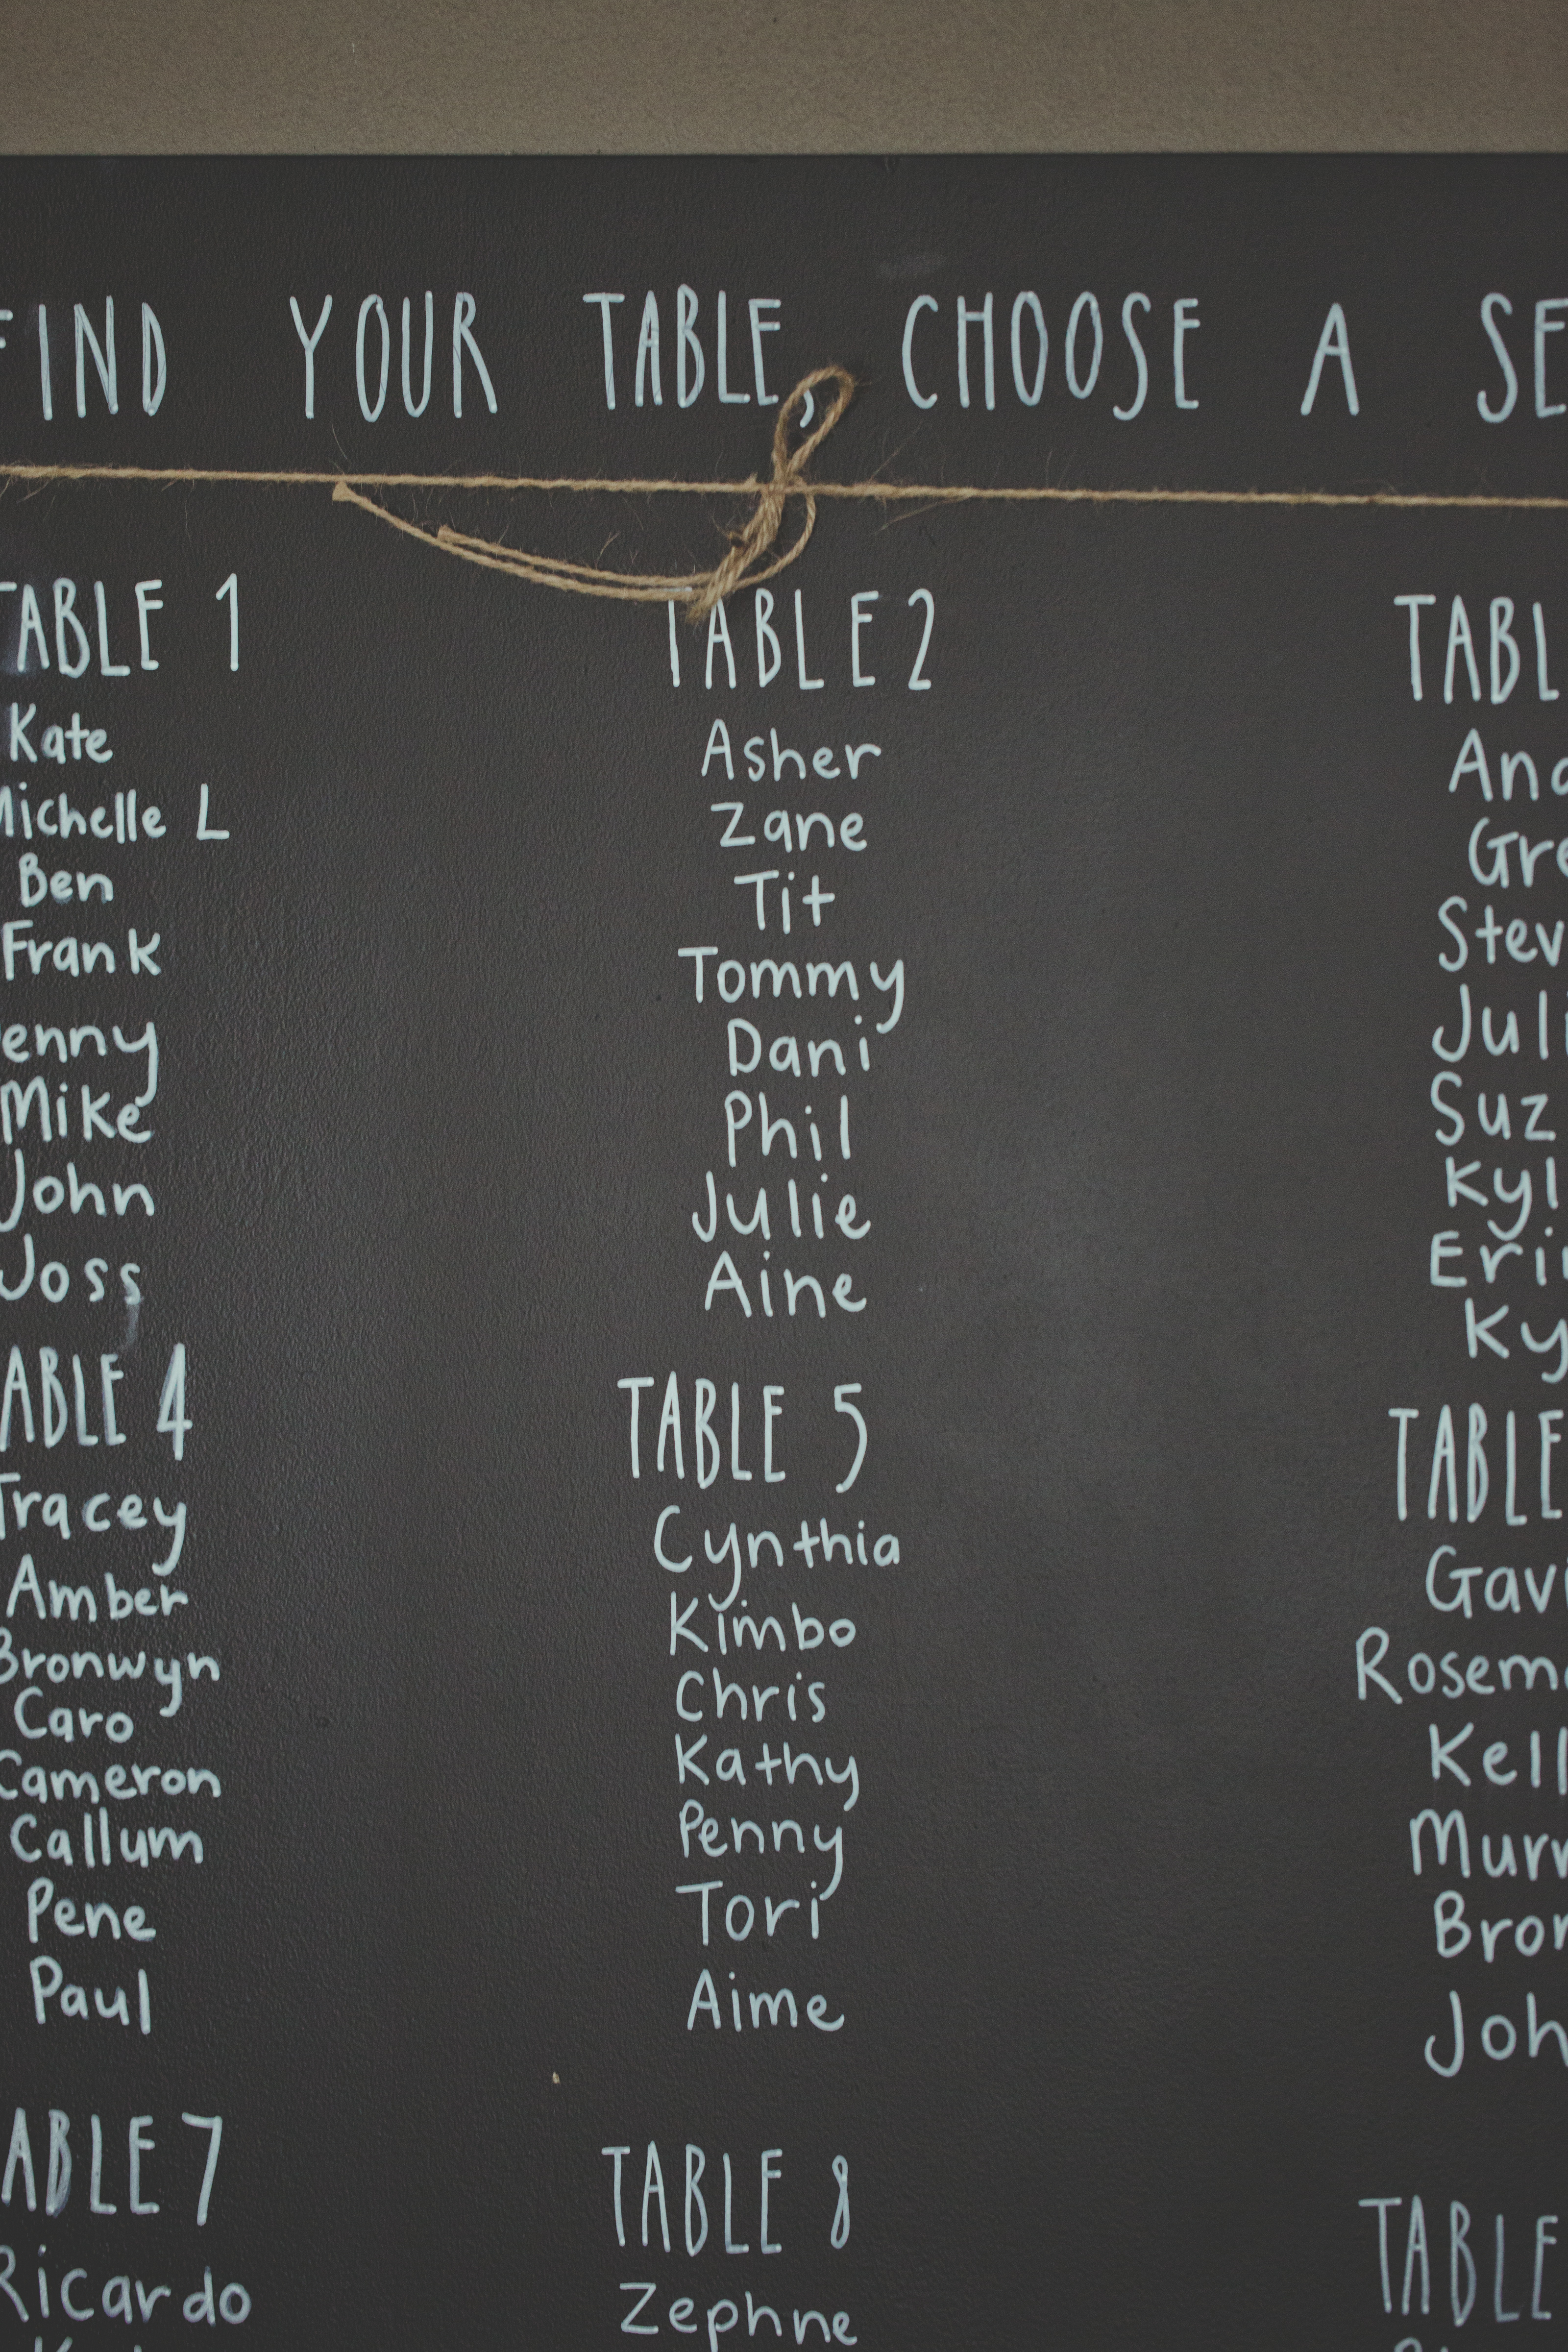 FIND YOUR TABLE, CHOOSE A SE
TABLE 1
Kate
Michelle L
Ben
Frank
enny
Mike
John
Joss
TABLE 2
Asher
Zane
Tit
Tommy
Dani
Phil
Julie
Aine
TABL
And
Gre
Stev
Juli
Suz
Kyl
Eri
Ky
ABLE 4
Tracey
Amber
Bronwyn
Caro
Cameron
Callum
Pene
Paul
TABLE 5
Cynthia
Kimbo
Chris
Kathy
Penny
Tori
Aime
TABLE
Gavi
Rosem
Kell
Murr
Bron
Joh
ABLE 7
Ricardo
TABLE 8
Zephne
TABLE